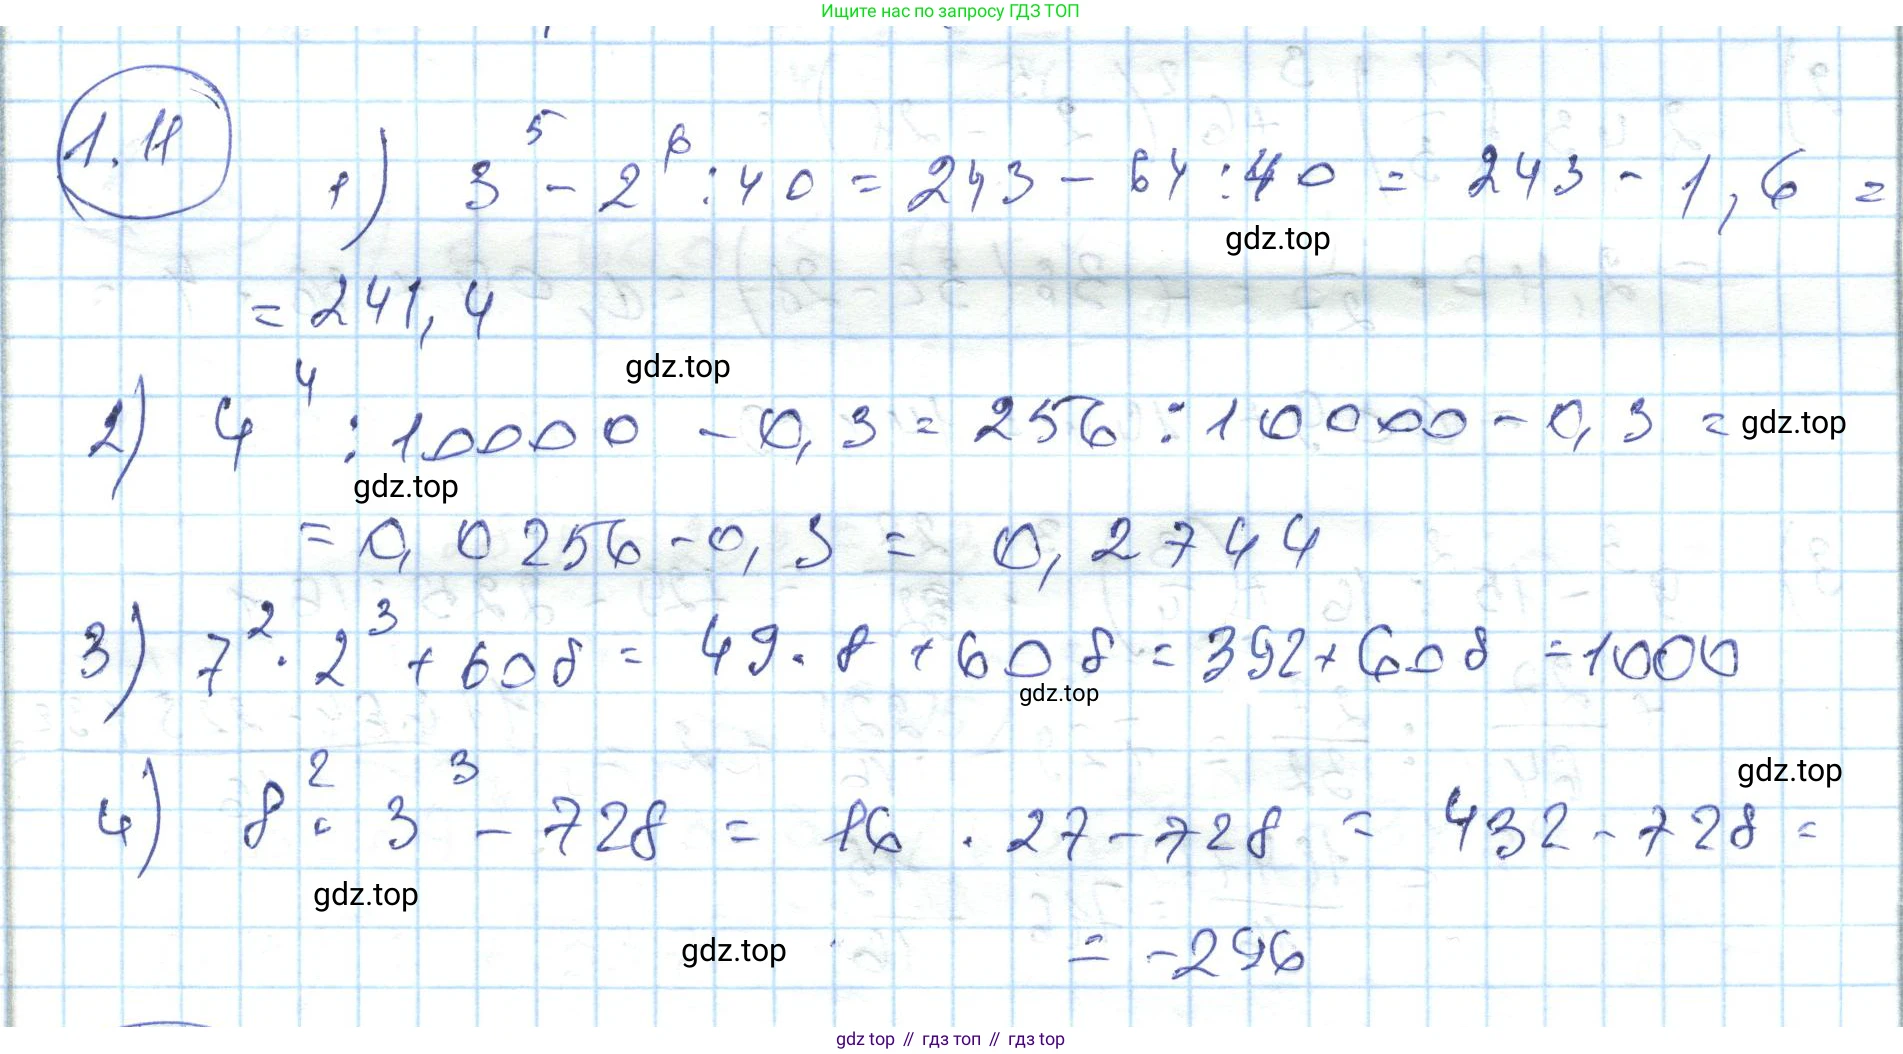 Ищите нас по запросу ГДЗ ТОП
1.11
1) 3⁵ - 2⁶ : 40 = 243 - 64 : 40 = 243 - 1,6 =
gdz.top
= 241,4
gdz.top
2) 4⁴ : 10000 - 0,3 = 256 : 10000 - 0,3 = gdz.top
gdz.top
= 0,0256 - 0,3 = 0,2744
3) 7² · 2³ + 608 = 49 · 8 + 608 = 392 + 608 = 1000
gdz.top
gdz.top
4) 8² · 3³ - 728 = 16 · 27 - 728 = 432 - 728 =
gdz.top
gdz.top = -296
gdz top // гдз топ // гдз top